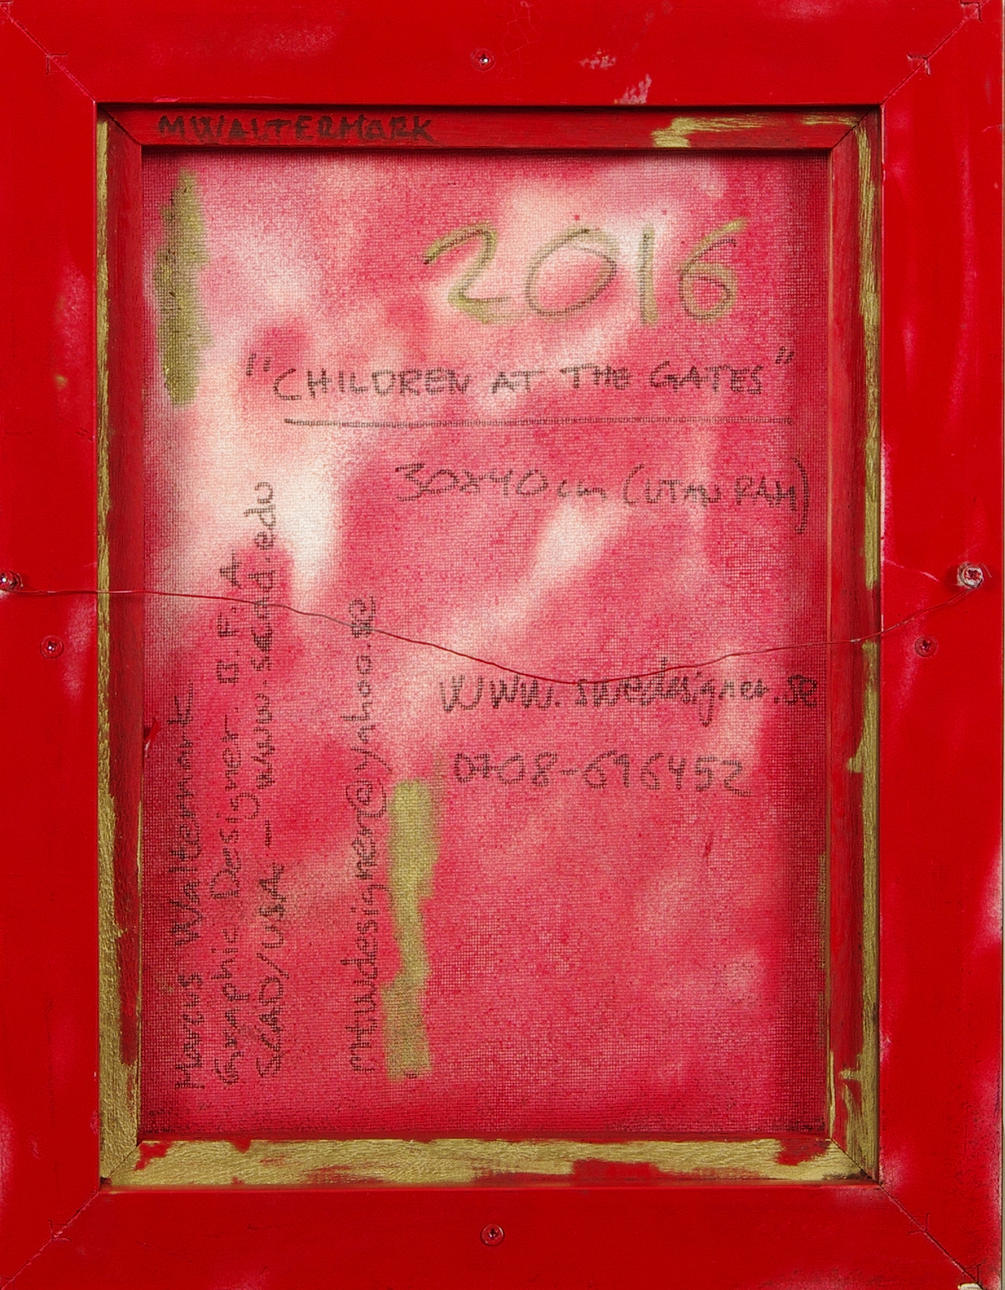 MWALTERMARK
2016
"CHILDREN AT THE GATES"
30x40 cm (UTAN RAM)
www.swedesigner.se
0708-696452
Marcus Waltermark
Graphic Designer. B.F.A
SCAD/USA - www.scad.edu
mtwdesigner@yahoo.se